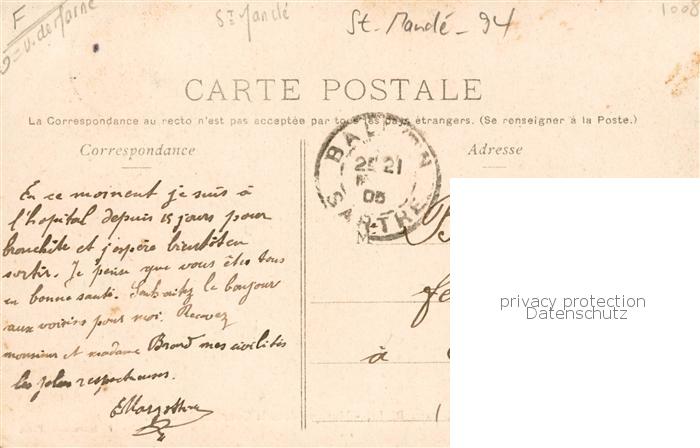 F
V. de Marne
St Mandé
St. Mandé - 94
1008
CARTE POSTALE
La Correspondance au recto n'est pas acceptée par tous les pays étrangers. (Se renseigner à la Poste.)
Correspondance
Adresse
BALLON
21
05
SARTHE
En ce moment je suis à
l'hopital depuis 15 jours pour
bronchite et j'espère bientôt en
sortir. Je pense que vous êtes tous
en bonne santé. Souhaitez le bonjour
aux voisins pour moi. Recevez
monsieur et madame Brard mes civilités
les plus respectueuses.
M
B
à
privacy protection
Datenschutz